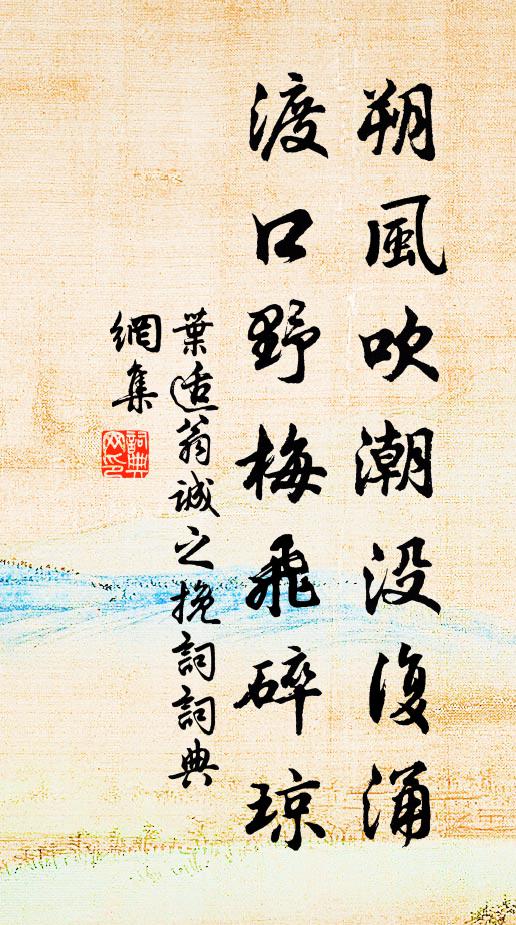 朔風吹潮没復涌
渡口野梅飛碎琼
葉適翁诚之挽詞詞典
網集
詞典
网印